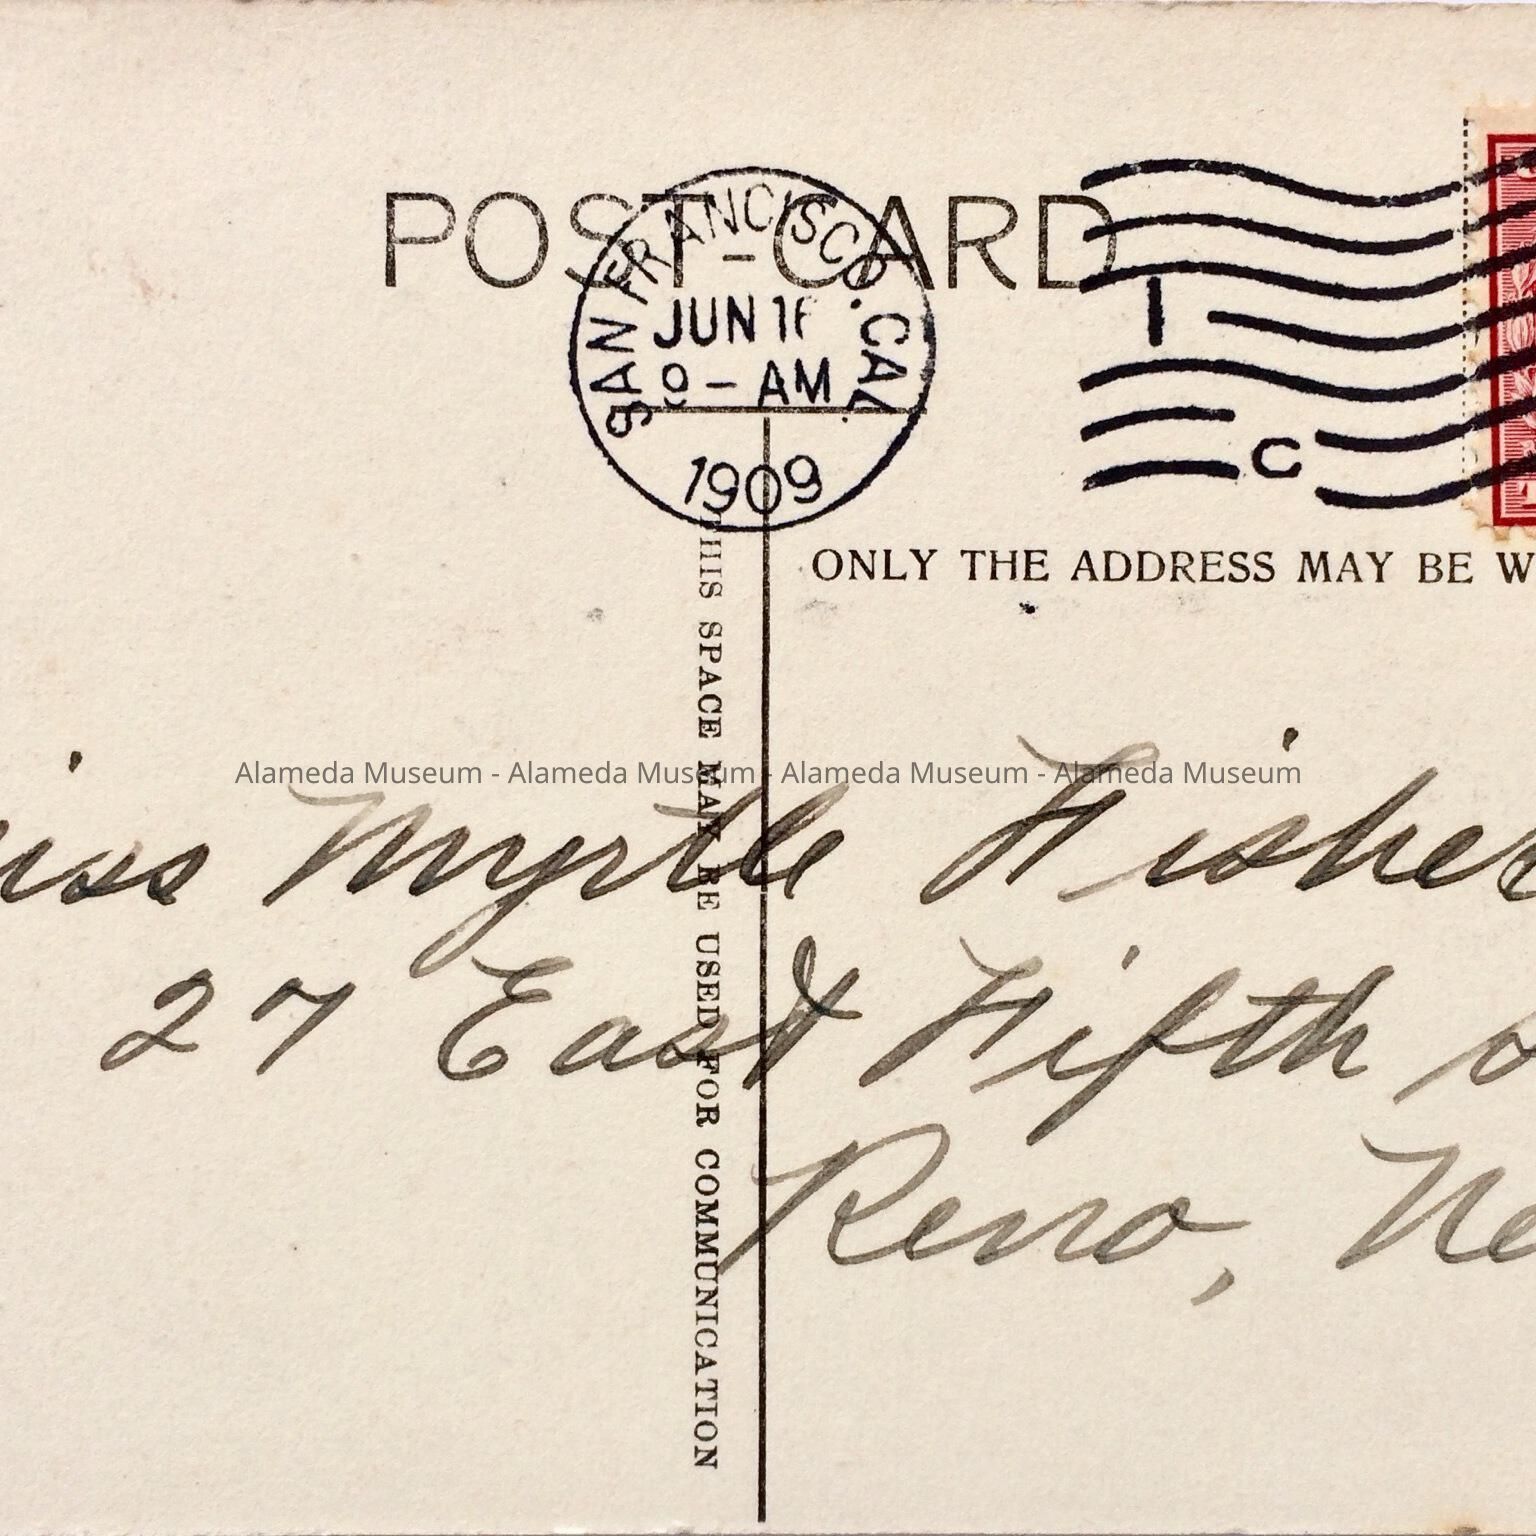 POST CARD
SAN FRANCISCO. CAL.
JUN
9 - AM
1909
1
C
THIS SPACE MAY BE USED FOR COMMUNICATION
ONLY THE ADDRESS MAY BE
Alameda Museum - Alameda Museum - Alameda Museum - Alameda Museum
iss Myrtle Fisher
27 East Fifth
Reno,